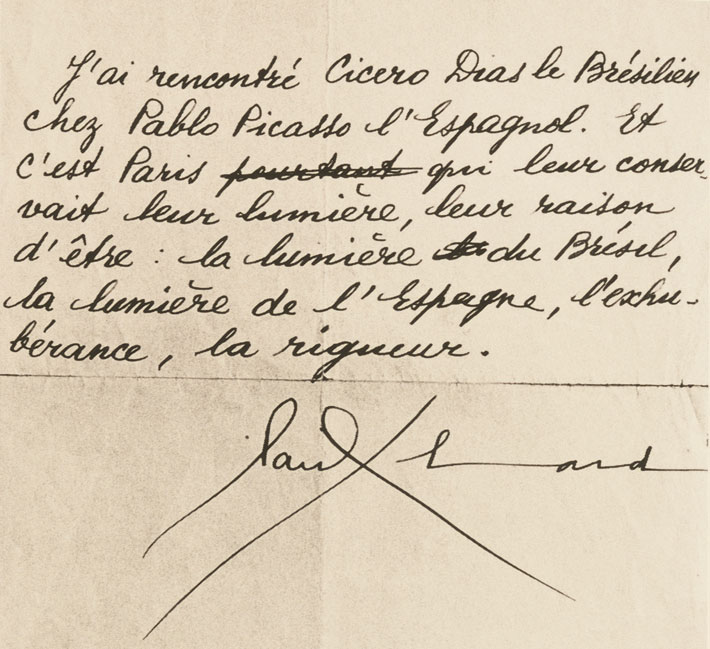 J'ai rencontré Cicero Dias le Brésilien
chez Pablo Picasso l'Espagnol. Et
c'est Paris pourtant qui leur conser-
vait leur lumière, leur raison
d'être : la lumière du Brésil,
la lumière de l'Espagne, l'exhu-
bérance, la rigueur.
Paul Eluard